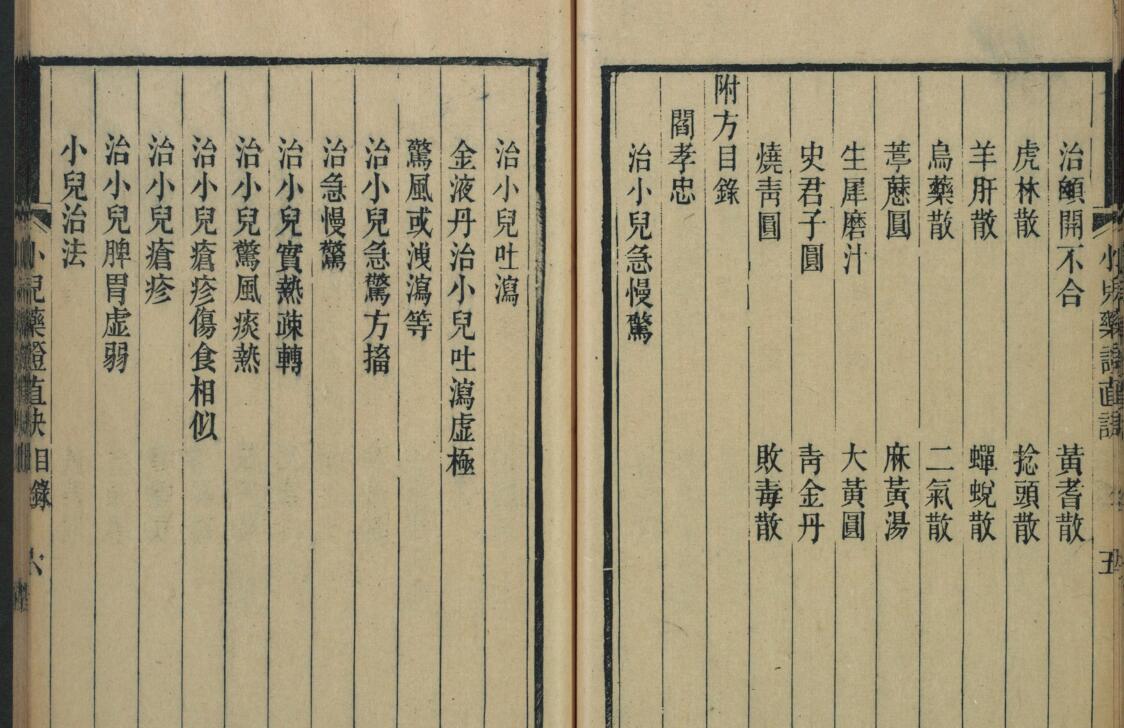 治顖開不合　黃耆散
虎林散　捻頭散
羊肝散　蟬蛻散
烏藥散　二氣散
葶藶圓　麻黃湯
生犀磨汁　大黃圓
史君子圓　靑金丹
燒靑圓　敗毒散
附方目錄
閻孝忠
治小兒急慢驚
治小兒吐瀉
金液丹治小兒吐瀉虛極
驚風或洩瀉等
治小兒急驚方搐
治急慢驚
治小兒實熱疎轉
治小兒驚風痰熱
治小兒瘡疹傷食相似
治小兒瘡疹
治小兒脾胃虛弱
小兒治法
小兒藥證直訣目錄　六